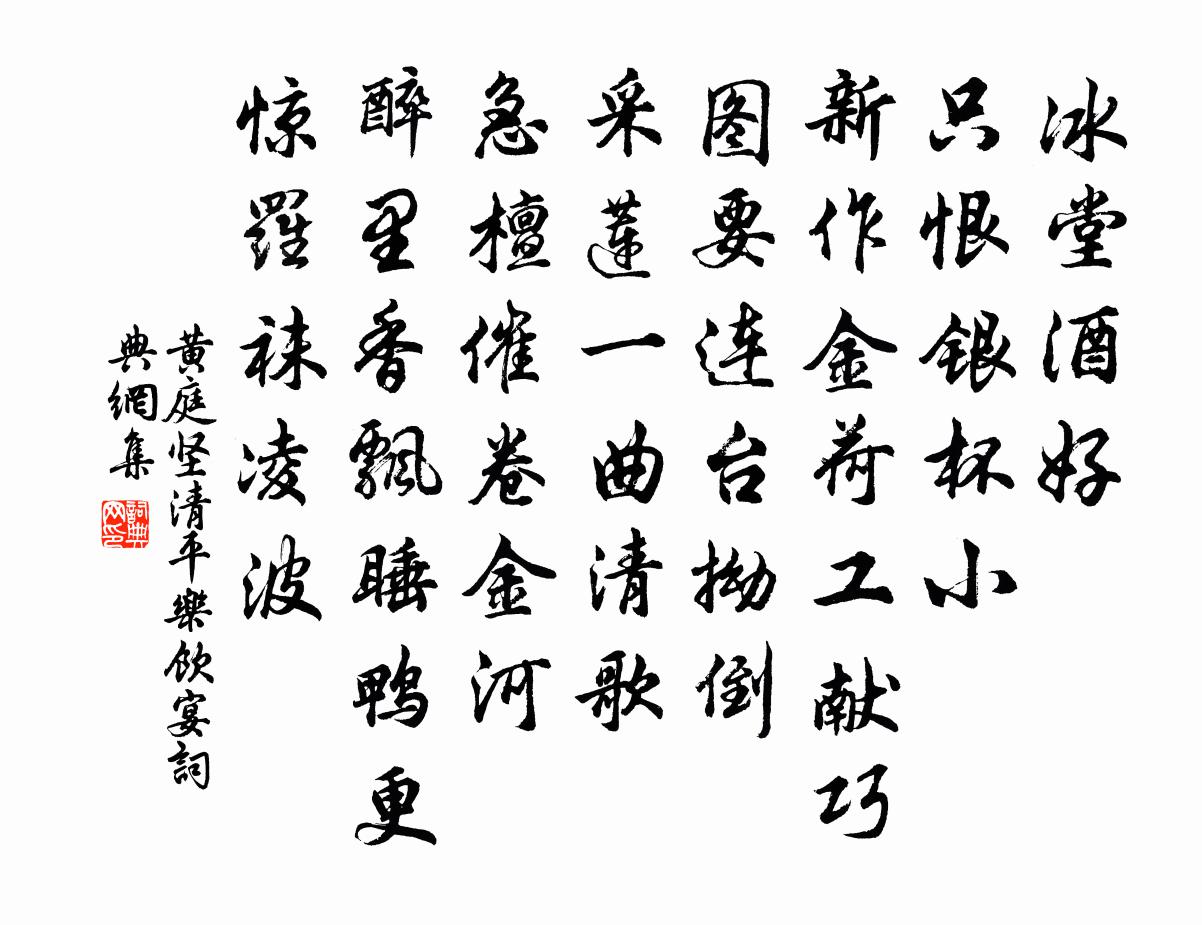 冰堂酒好
只恨银杯小
新作金荷工献巧
图要连台拗倒
采莲一曲清歌
急檀催卷金河
醉里香飘睡鸭更
惊羅袜凌波
黄庭坚清平樂饮宴詞
典網集
詞典
网印